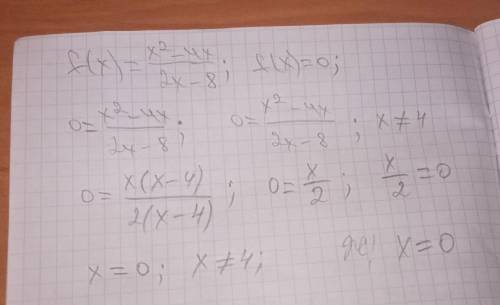 f(x) = (x² - 4x)/(2x - 8); f(x) = 0;
0 = (x² - 4x)/(2x - 8); 0 = (x² - 4x)/(2x - 8); x ≠ 4
0 = x(x - 4)/2(x - 4); 0 = x/2; x/2 = 0
x = 0; x ≠ 4; x = 0